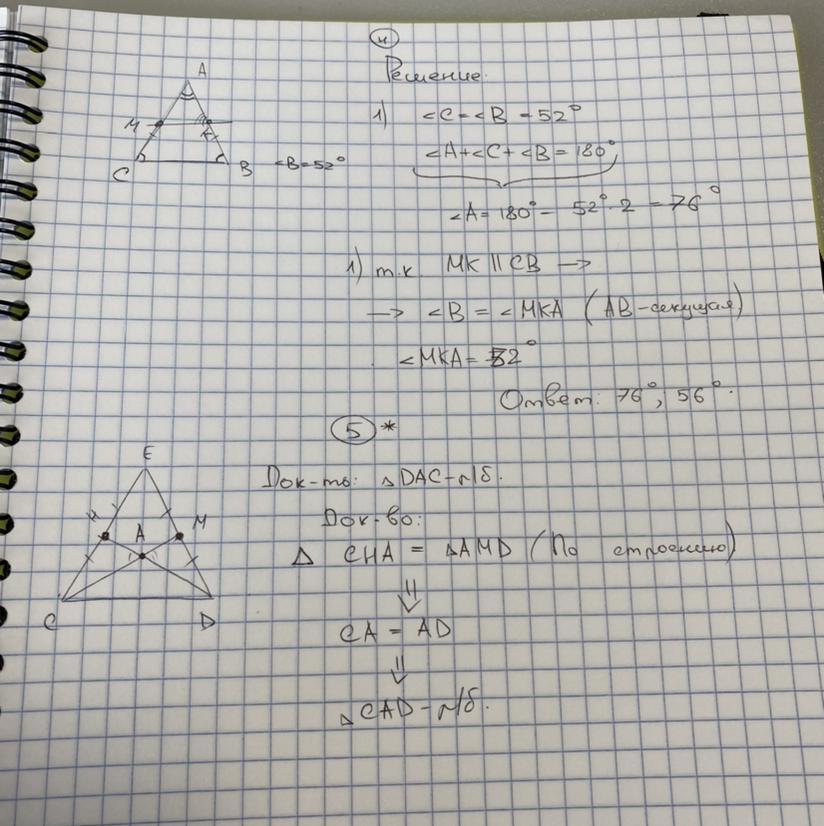 4
Решение.
A
M
K
C
B
∠B=52°
1) ∠C=∠B=52°
∠A+∠C+∠B=180°
∠A=180°-52°·2=76°
1) т.к. MK || CB →
→ ∠B=∠MKA (AB-секущая)
∠MKA=52°
Ответ: 76°, 56°.
5*
E
H
A
M
C
D
Док-ть: △DAC-р/б.
Док-во:
△ CHA = △AMD (По строению)
⇓
CA = AD
⇓
△CAD-р/б.